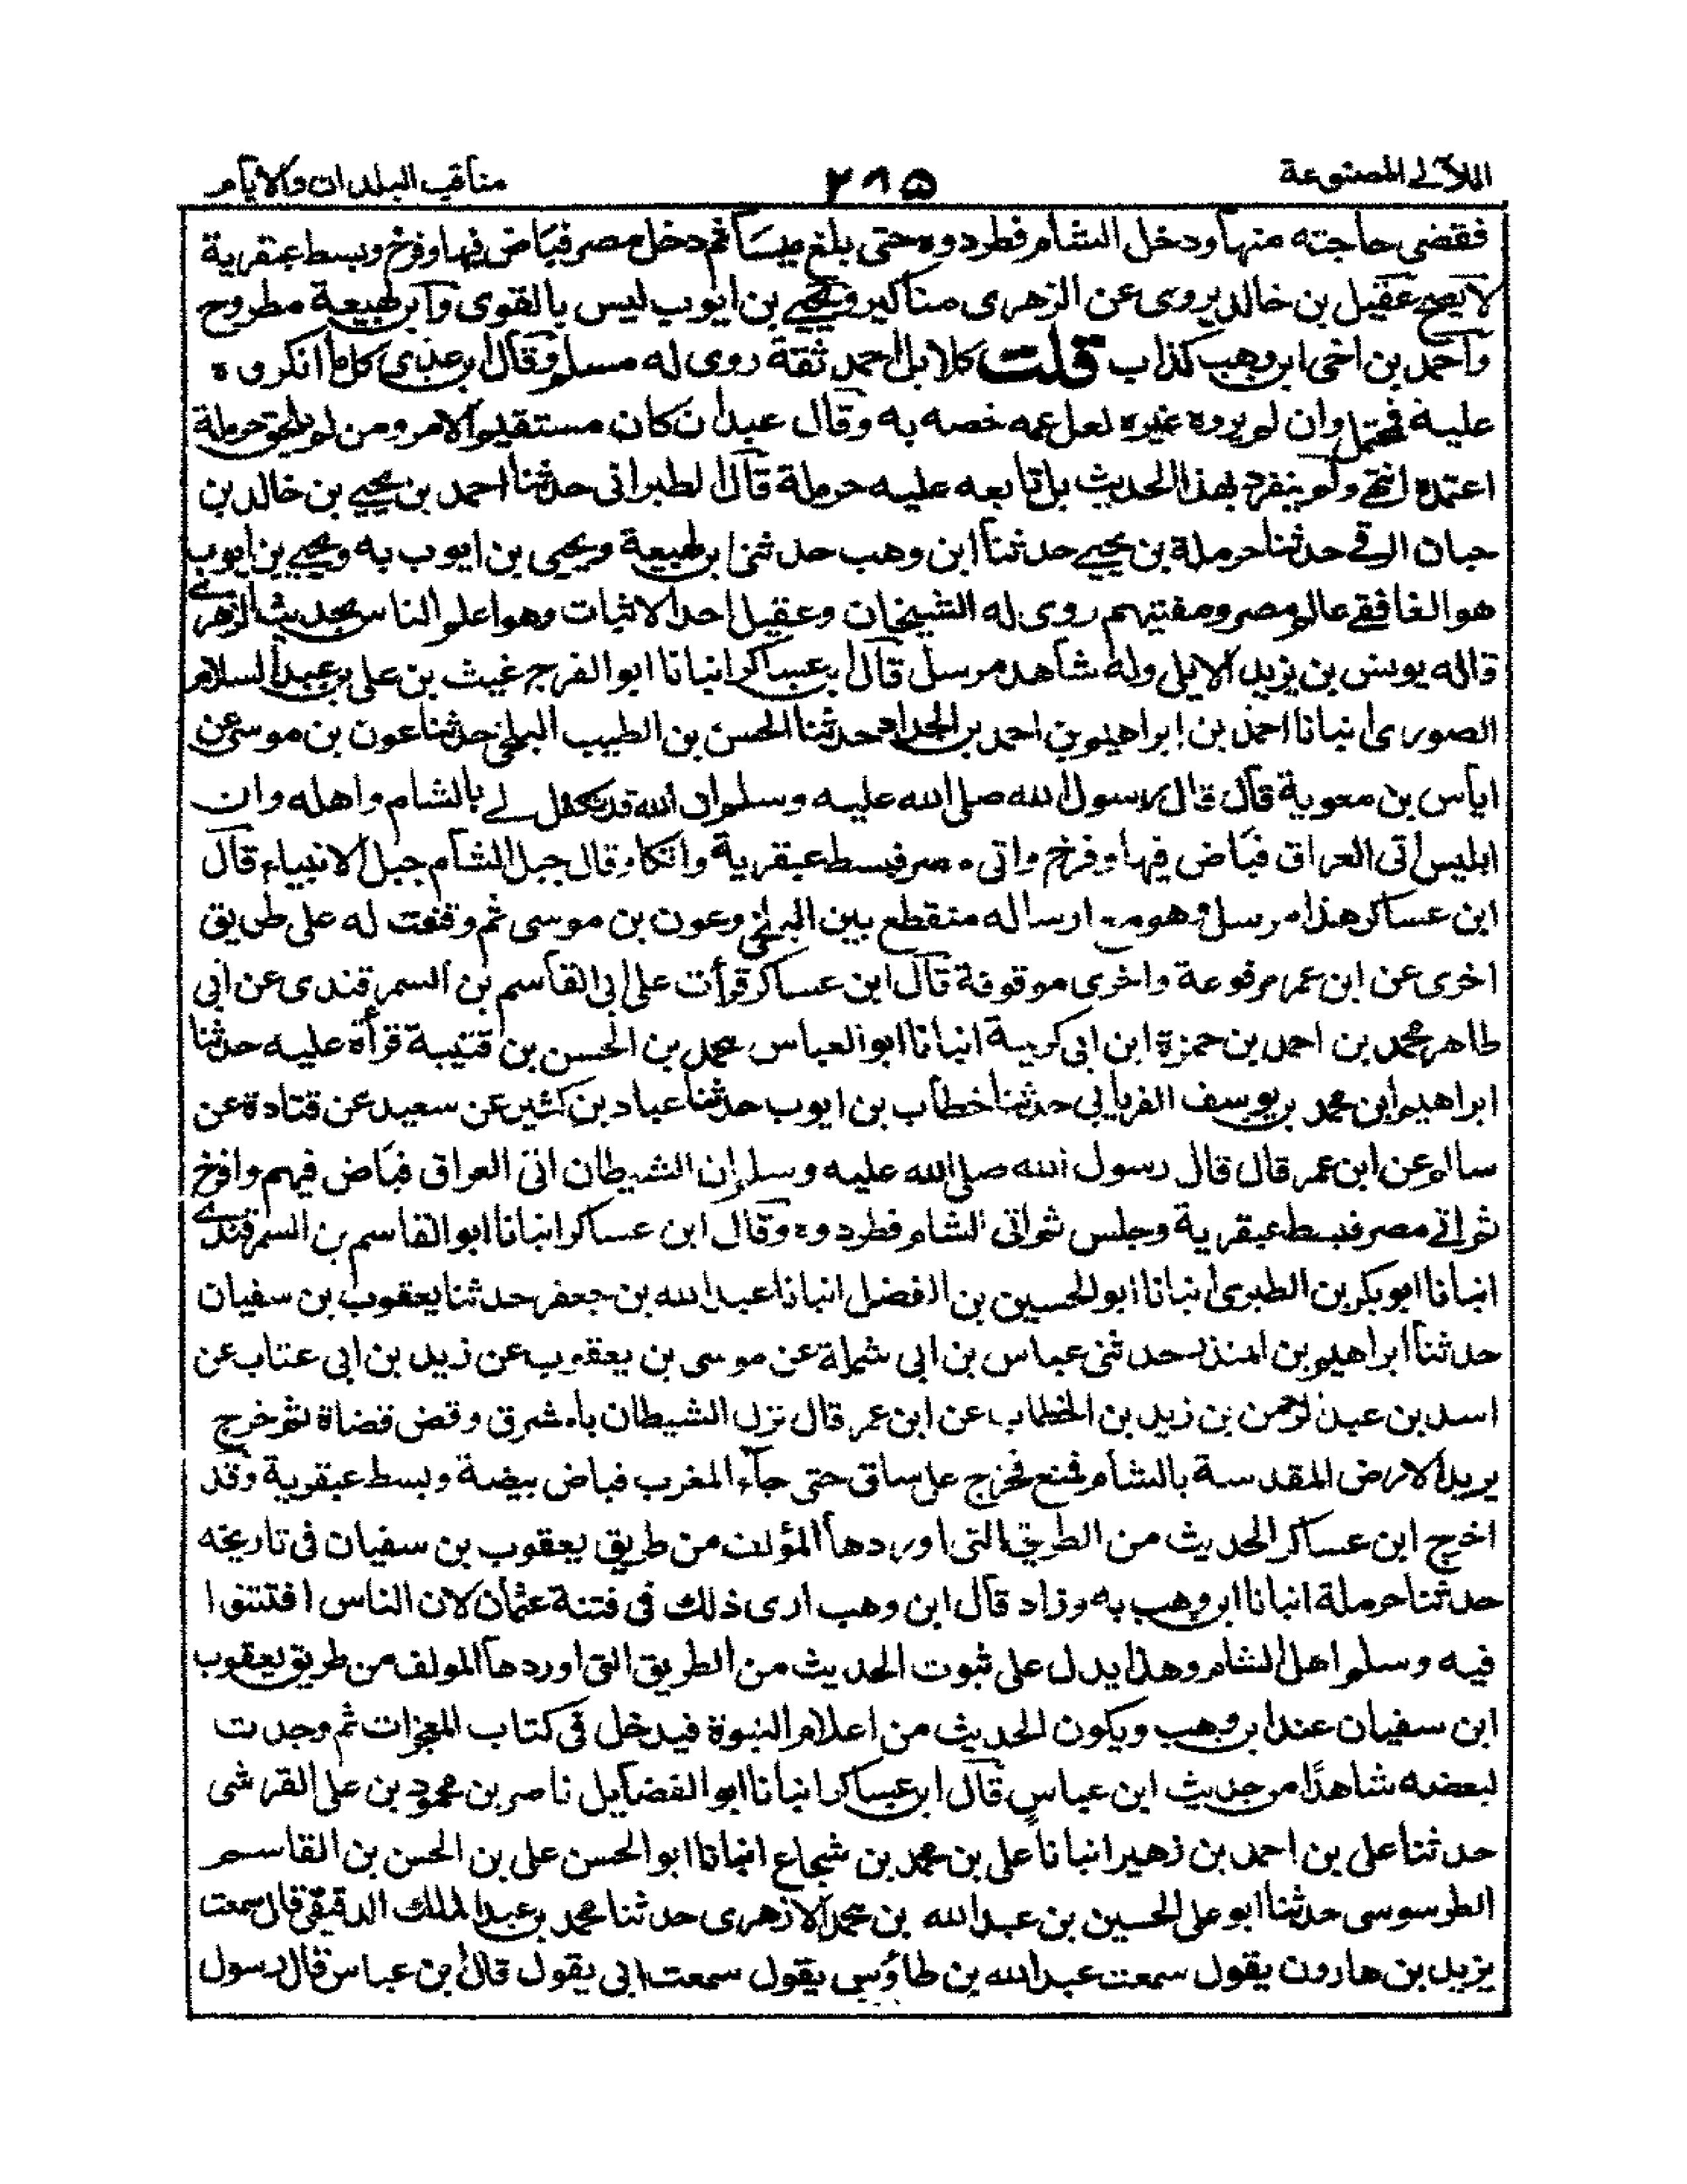 اللآلى المصنوعة
٢٨٥
مناقب البلدان والايام
فقضى حاجته منها ودخل الشام فطردوه حتى بلغ ميسا ثم دخل مصر فباض فيها وفرخ وبسط عبقرية
لا يصح عقيل بن خالد يروى عن الزهرى مناكير ويحيى بن ايوب ليس بالقوى وابن لهيعة مطروح
واحمد بن اخى ابن وهب كذاب قلت كلا بل احمد ثقة روى له مسلم وقال ابن عدى كل ما انكروه
عليه فمحتمل وان لم يروه غيره لعل عمه خصه به وقال عبدان كان مستقيم الامر ومن لم يلحق حرملة
اعتمده انتهى ولم ينفرد بهذا الحديث بل تابعه عليه حرملة قال الطبرانى حدثنا احمد بن يحيى بن خالد بن
حبان الرقى حدثنا حرملة بن يحيى حدثنا ابن وهب حدثنى ابن لهيعة ويحيى بن ايوب به ويحيى بن ايوب
هو الغافقى عالم مصر ومفتيهم روى له الشيخان وعقيل احد الاثبات وهو اعلم الناس بحديث الزهرى
قاله يونس بن يزيد الايلى وله شاهد مرسل قال ابن عساكر انبانا ابو الفرج غيث بن على بن عبد السلام
الصورى انبانا احمد بن ابراهيم بن احمد بن الحداد حدثنا الحسن بن الطيب البلخى حدثنا عون بن موسى عن
اياس بن معوية قال قال رسول الله صلى الله عليه وسلم ان الله قد تكفل لى بالشام واهله وان
ابليس اتى العراق فباض فيها وفرخ واتى مصر فبسط عبقرية واتكا وقال جبل الشام جبل الانبياء قال
ابن عساكر هذا مرسل وهو مع ارساله منقطع بين البلخى وعون بن موسى ثم وقفت له على طريق
اخرى عن ابن عمر مرفوعة واخرى موقوفة قال ابن عساكر قرأت على ابى القاسم بن السمرقندى عن ابى
طاهر محمد بن احمد بن حمزة ابن ابى كريبة انبانا ابو العباس محمد بن الحسن بن قتيبة قرأة عليه حدثنا
ابراهيم ابن محمد بن يوسف الفريابى حدثنا خطاب بن ايوب حدثنا عباد بن كثير عن سعيد عن قتادة عن
سالم عن ابن عمر قال قال رسول الله صلى الله عليه وسلم ان الشيطان اتى العراق فباض فيهم وافرخ
ثم اتى مصر فبسط عبقرية وجلس ثم اتى الشام فطردوه وقال ابن عساكر انبانا ابو القاسم بن السمرقندى
انبانا ابو بكر بن الطبرى انبانا ابو الحسين بن الفضل انبانا عبد الله بن جعفر حدثنا يعقوب بن سفيان
حدثنا ابراهيم بن المنذر حدثنى عباس بن ابى شملة عن موسى بن يعقوب عن زيد بن ابى عتاب عن
اسد بن عبد الرحمن بن زيد بن الخطاب عن ابن عمر قال نزل الشيطان بالمشرق وقض قضاة ثم خرج
يريد الارض المقدسة بالشام فمنع فخرج على ساق حتى جآء المغرب فباض بيضة وبسط عبقرية وقد
اخرج ابن عساكر الحديث من الطريق التى اوردها المؤلف من طريق يعقوب بن سفيان فى تاريخه
حدثنا حرملة انبانا ابن وهب به وزاد قال ابن وهب ارى ذلك فى فتنة عثمان لان الناس افتتنوا
فيه وسلم اهل الشام وهذا يدل على ثبوت الحديث من الطريق التى اوردها المولف من طريق يعقوب
ابن سفيان عند ابن وهب ويكون الحديث من اعلام النبوة فيدخل فى كتاب المعجزات ثم وجدت
لبعضه شاهدًا من حديث ابن عباس قال ابن عساكر انبانا ابو الفضايل ناصر بن محمود بن على القرشى
حدثنا على بن احمد بن زهير انبانا على بن محمد بن شجاع انبانا ابو الحسن على بن الحسن بن القاسم
الطرسوسى حدثنا ابو على الحسين بن عبد الله بن محمد الازهرى حدثنا محمد بن عبد الملك الدقيقى قال سمعت
يزيد بن هارون يقول سمعت عبد الله بن طاؤس يقول سمعت ابى يقول قال ابن عباس قال رسول